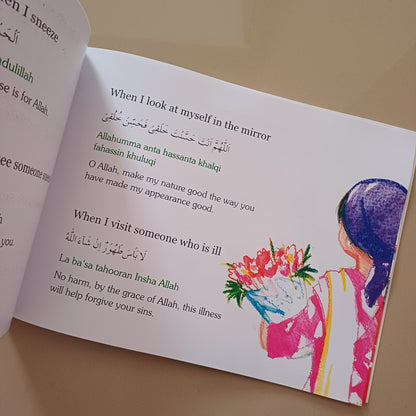 I sneeze
dulillah
is for Allah.
someone
you.
When I look at myself in the mirror
اَللّٰهُمَّ اَنْتَ حَسَّنْتَ خَلْقِىْ فَحَسِّنْ خُلُقِىْ
Allahumma anta hassanta khalqi
fahassin khuluqi
O Allah, make my nature good the way you
have made my appearance good.
When I visit someone who is ill
لَا بَاْسَ طَهُوْرٌ اِنْ شَاءَ اللّٰهُ
La ba'sa tahooran Insha Allah
No harm, by the grace of Allah, this illness
will help forgive your sins.